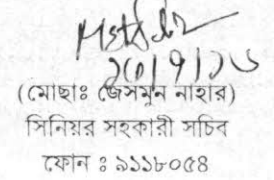 ২০/৭/১৬
(মোছাঃ জেসমুন নাহার)
সিনিয়র সহকারী সচিব
ফোন ঃ ৯১১৮০৫৪